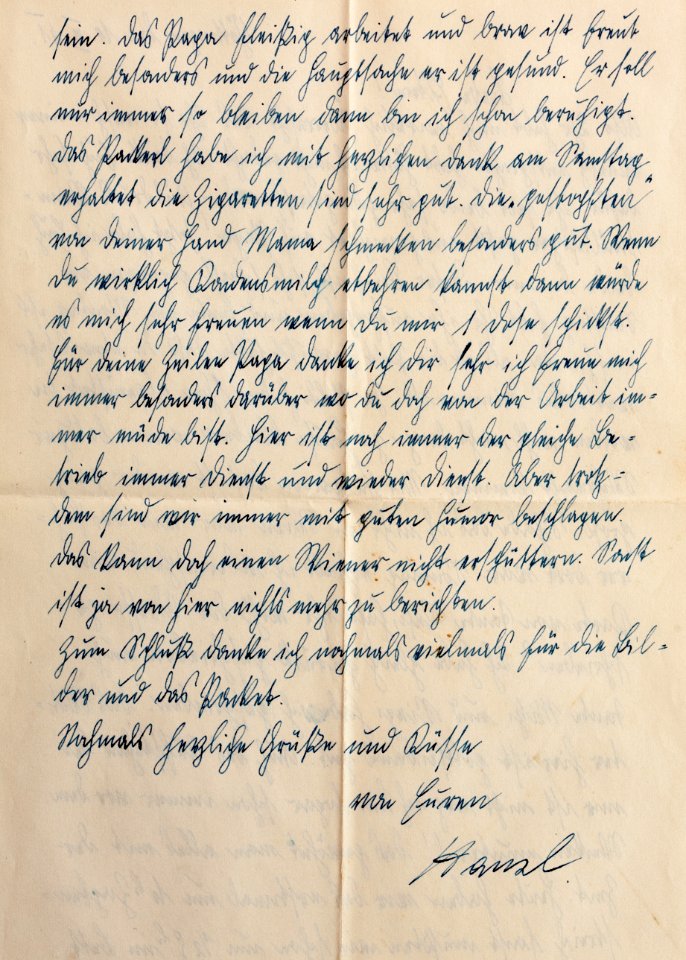 sein. Das Papa fleißig arbeitet und brav ist freut
mich besonders und die Hauptsache er ist gesund. Er soll
nur immer so bleiben dann bin ich schon beruhigt.
Das Packerl habe ich mit herzlichen Dank am Samstag
erhaltet die Zigaretten sind sehr gut. Die „gestopften"
von deiner Hand Mama schmecken besonders gut. Wenn
Du wirklich Kondensmilch etbehren kannst dann würde
es mich sehr freuen wenn Du mir 1 Dose schickst.
Für deine Zeilen Papa danke ich dir sehr ich freue mich
immer besonders darüber wo du doch von der Arbeit im-
mer müde bist. Hier ist noch immer der gleiche Be-
trieb immer Dienst und wieder Dienst. Aber trotz=
dem sind wir immer mit guten Humor beschlagen.
Das kann doch einen Wiener nicht erschüttern. Sonst
ist ja von hier nichts mehr zu berichten.
Zum Schluß danke ich nochmals vielmals für die Bil=
der und das Packet.
Nochmals herzliche Grüße und Küsse
von Euren
Hansl.